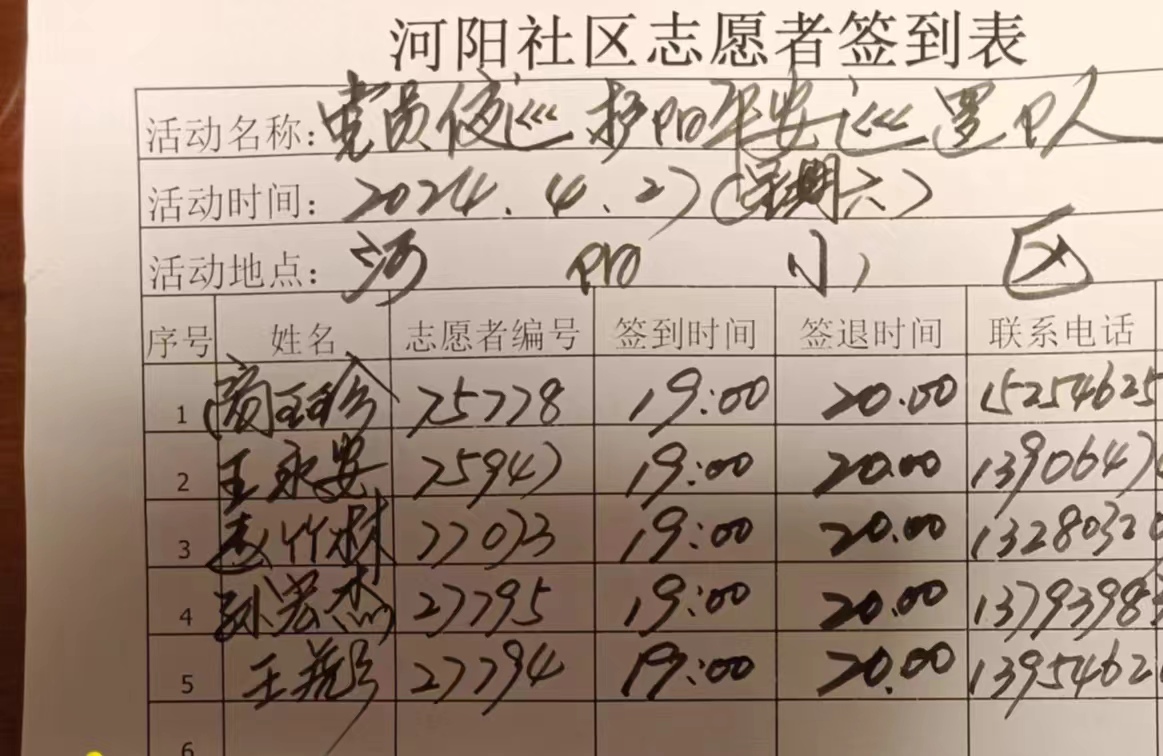 河阳社区志愿者签到表
活动名称：党员夜巡 护阳平安巡逻队
活动时间：2024.4.27（星期六）
活动地点：河阳小区
序号 姓名 志愿者编号 签到时间 签退时间 联系电话
1 19:00 20.00 15254625
2 王永安 25947 19:00 20.00 1390647
3 竹林 19:00 20.00 1328032
4 孙宏杰 27795 19:00 20.00 1379398
5 王 27794 19:00 20.00 1395462
6